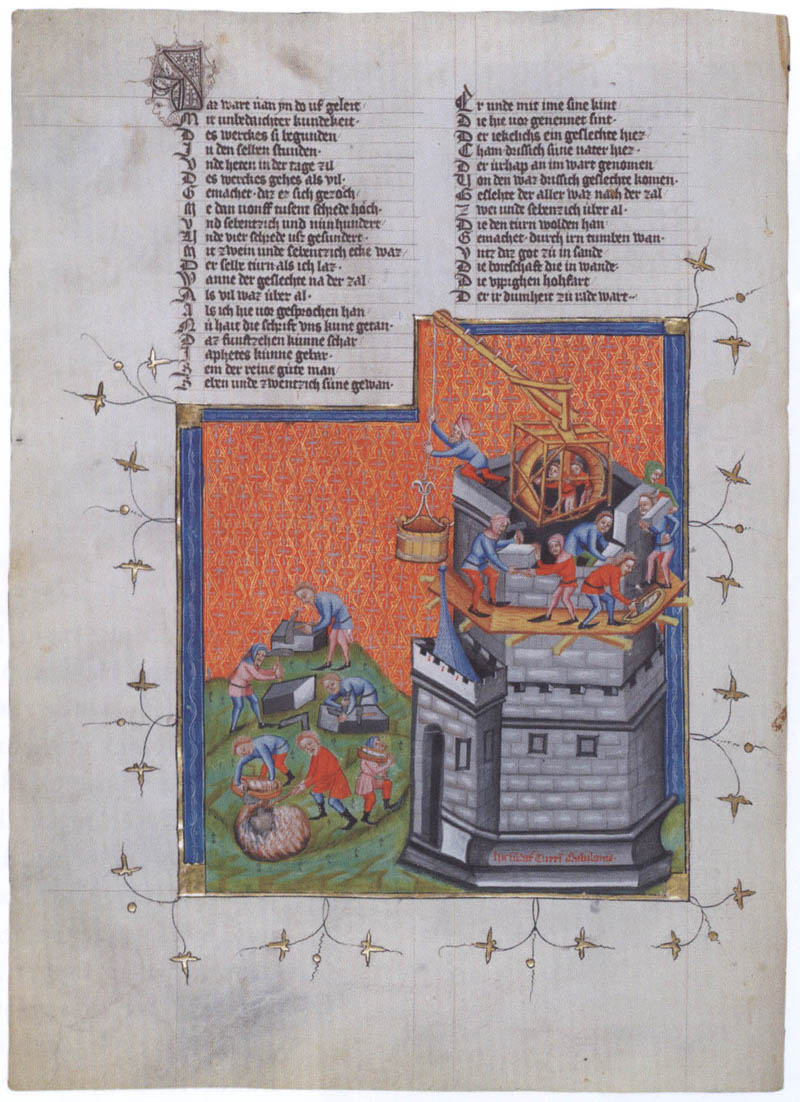 Dar wart uan yn do uf geleit
Mit unbedachter kundekeit·
Des werckes si begunden
In den selben stunden·
Unde heten in der tage zil
Des werckes gehes als vil·
Gemachet· daz er sich gezoch
Me dan uonff tusent schrede hoch·
Und sebentzich und nun hundert
Unde vier schrede usz gesundert·
Mit zwein unde sebentzich ecke waz
Der selbe turn als ich laz·
Wanne der geslechte na der zal
Als vil waz über al·
Als ich hie uor gesprochen han
Nu hait die schrift vns kunt getan·
Daz funftzehen künne schar
Japhetes künne gebar·
Sem der reine gute man
Seben unde zwentzich süne gewan·
Er unde mit ime sine kint
Die hie uor genennet sint·
Der iekelichs ein geslechte hiez
Cham drissich süne nater hiez·
Der urhap an im wart genomen
Uon den waz drissich geslechte komen·
Geslehte der aller waz nach der zal
Zwei unde sebenzich über al·
Die den turn wolden han
Gemachet· durch irn tumben wan·
Untz daz got zu in sande
Die botschaft die in wande·
Die uppigen hohfart
Der ir dumheit zu rade wart·
turris Babilonie·